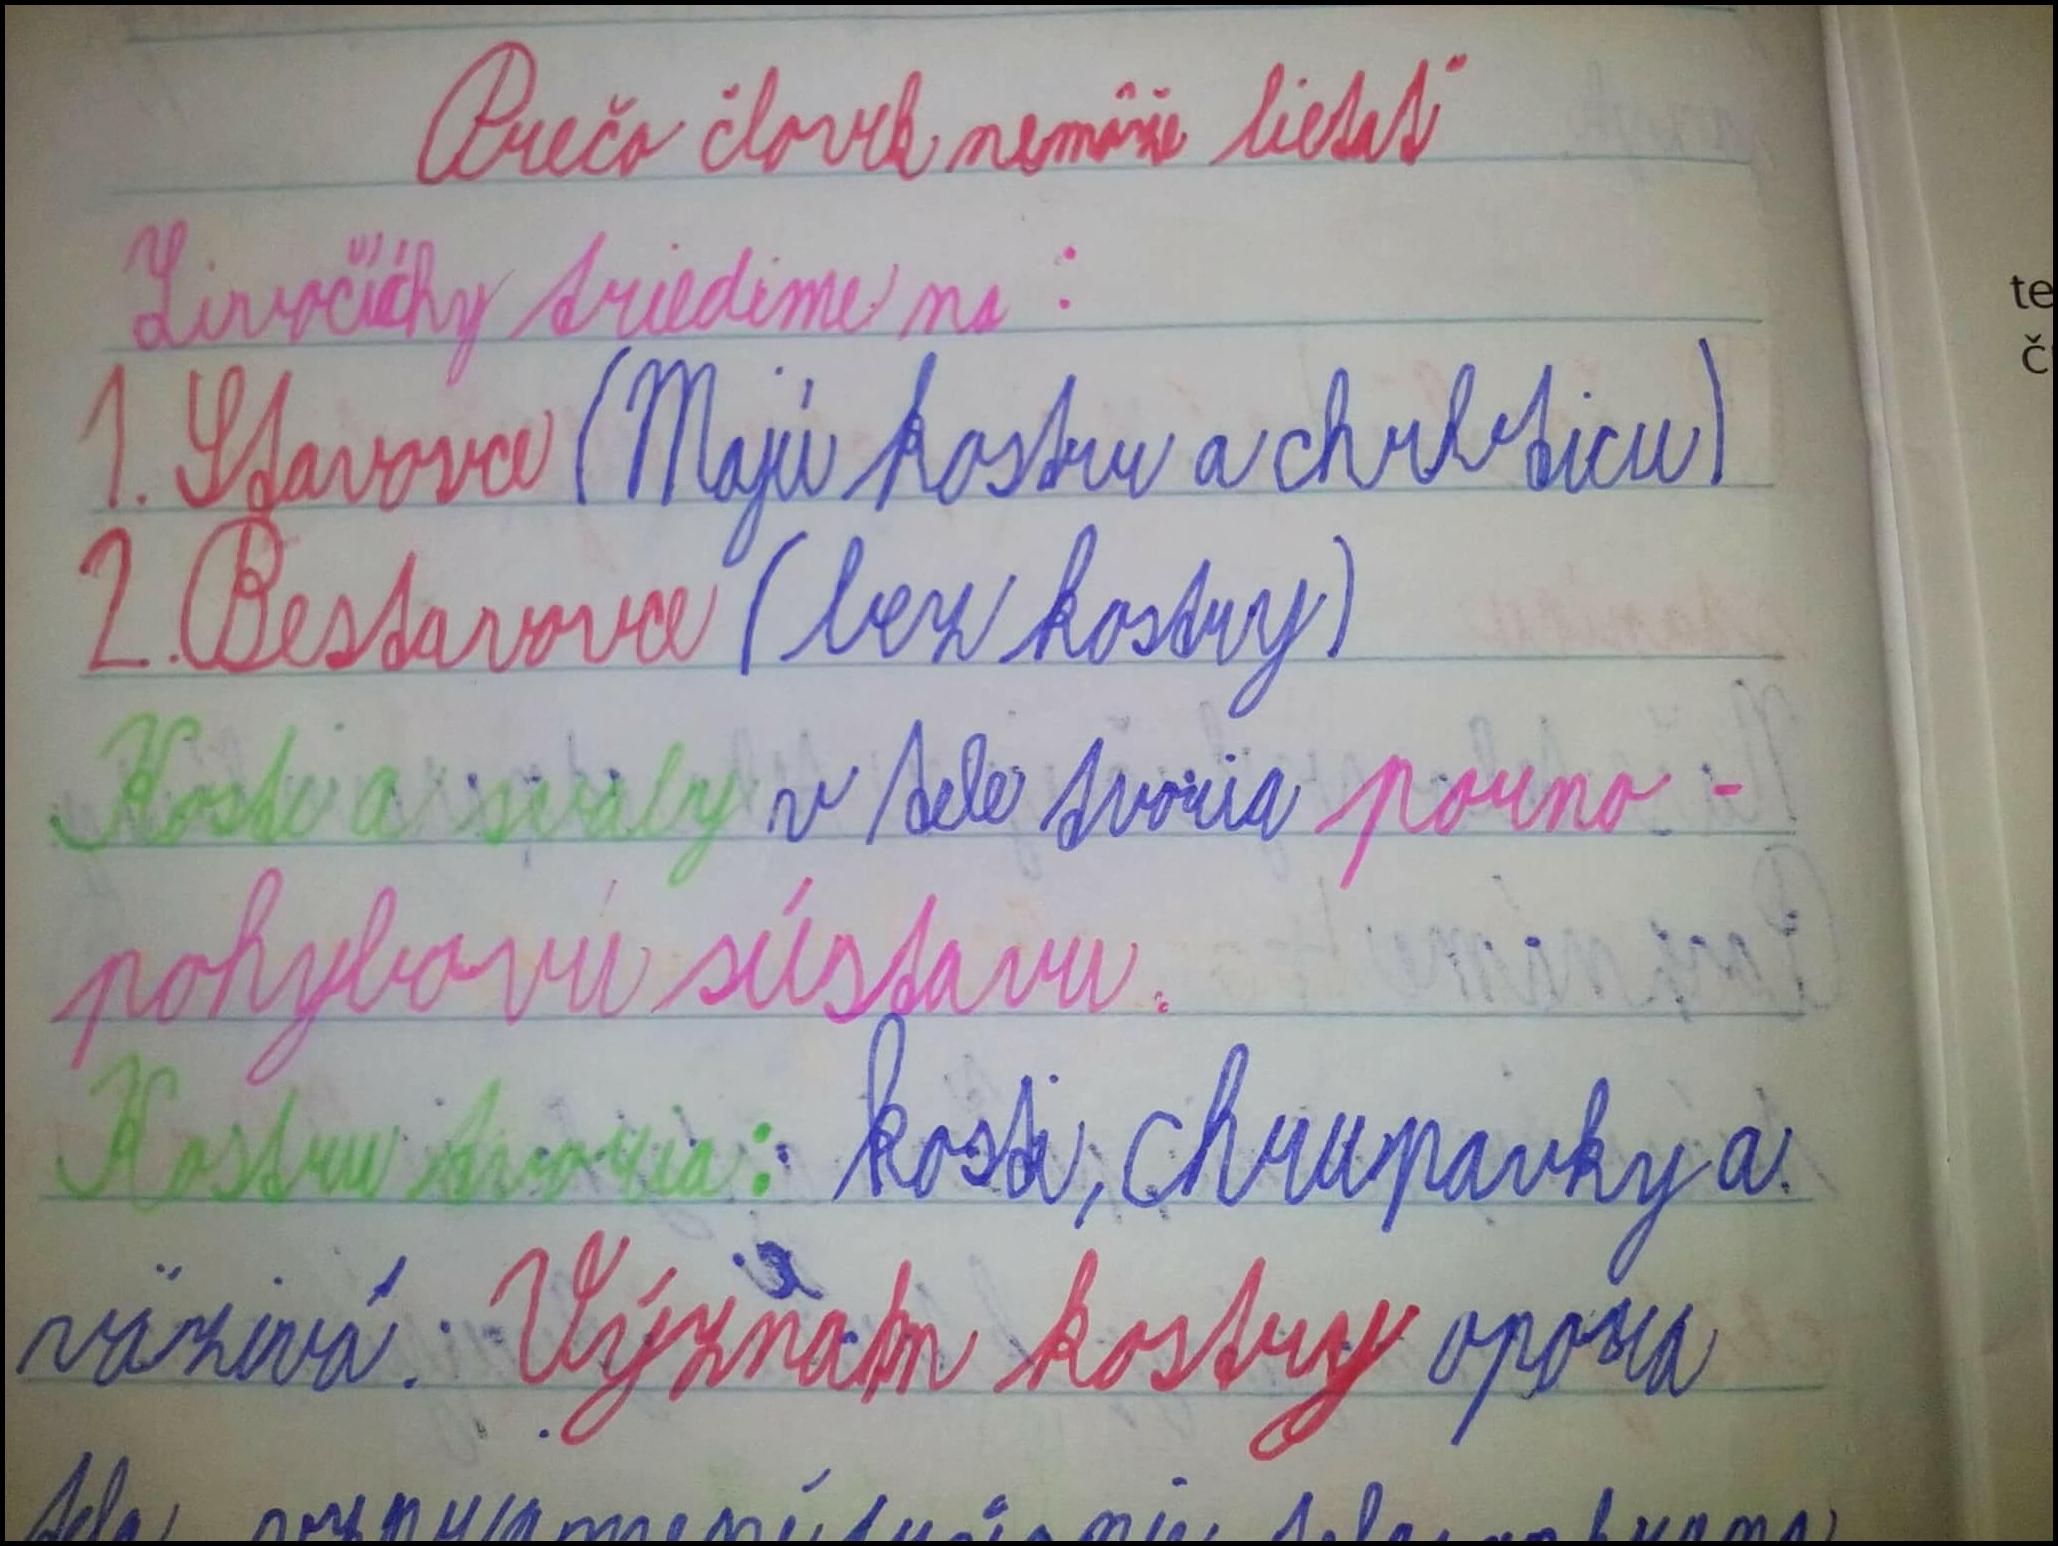 Prečo človek nemôže lietať
Živočíchy triedime na:
1. Stavovce (Majú kostru a chrbticu)
2. Bestavovce (bez kostry)
Kosti a svaly v tele tvoria porno-
pohybovú sústavu.
Kostru tvoria: kosti, chrupavky a
väzivá. Význam kostry opora
tela
te
č